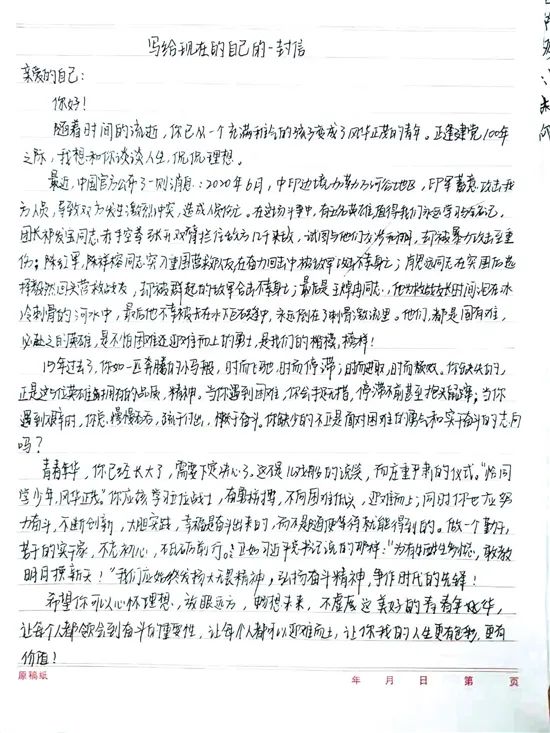 写给现在的自己的一封信
亲爱的自己：
你好！
随着时间的流逝，你已从一个充满稚气的孩子变成了风华正茂的青年。正逢建党100年
之际，我想和你谈谈人生，侃侃理想。
最近，中国官方公布了一则消息：2020年6月，中印边境加勒万河谷地区，印军蓄意攻击我
方人员，导致双方发生激烈冲突，造成人员伤亡。在这场斗争中，有五名英雄值得我们永远学习与铭记，
团长祁发宝同志，赤手空拳张开双臂拦住敌方几千来敌，试图与他们交涉，却被暴力攻击至重
伤；陈红军、陈祥榕同志突入重围营救队友，在奋力回击中被敌军杀害；肖思远同志在突围后选
择毅然回头营救战友，却被群起的敌军合击牺牲；最后是王焯冉同志，他为救战友长时间泡在冰
冷刺骨的河水中，最后他不幸被卡在水下石缝中，永远倒在了刺骨激流里。他们，都是国有难，
必赴之的英雄，是不怕困难迎难而上的勇士，是我们的楷模，榜样！
15年过去了，你如一匹奔腾的小马驹，时而飞驰，时而停滞；时而进取，时而颓败。你缺失的，
正是这5位英雄身上拥有的品质，精神。当你遇到困难，你会手足无措，停滞不前甚至抱头鼠窜；当你
遇到艰辛时，你总慢慢吞吞，疏于付出，懒于奋斗。你缺少的不正是面对困难的勇气和实干奋斗的志向
吗？
青春年华，你已经长大了，需要下定决心了。这不是儿戏般的说笑，而庄重严肃的仪式。“恰同
学少年，风华正茂”你应该学习五位战士，有勇敢拼搏，不向困难低头，迎难而上；同时你也应努
力奋斗，不断创新，大胆实践，幸福是奋斗出来的，而不是随便等待就能得到的。做一个勤于，
苦干的实干家，不忘初心，不断砥砺前行。正如习近平总书记说的那样：“为有牺牲多壮志，敢教
日月换新天！”我们应始终发扬大无畏精神，弘扬奋斗精神，争作时代的先锋！
希望你可以心怀理想，放眼远方，畅想未来，不虚度这美好的青春年华，
让每个人都领会到奋斗的重要性，让每个人都可以迎难而上，让你我的人生更有色彩，更有
价值！
原稿纸 年 月 日 第 页